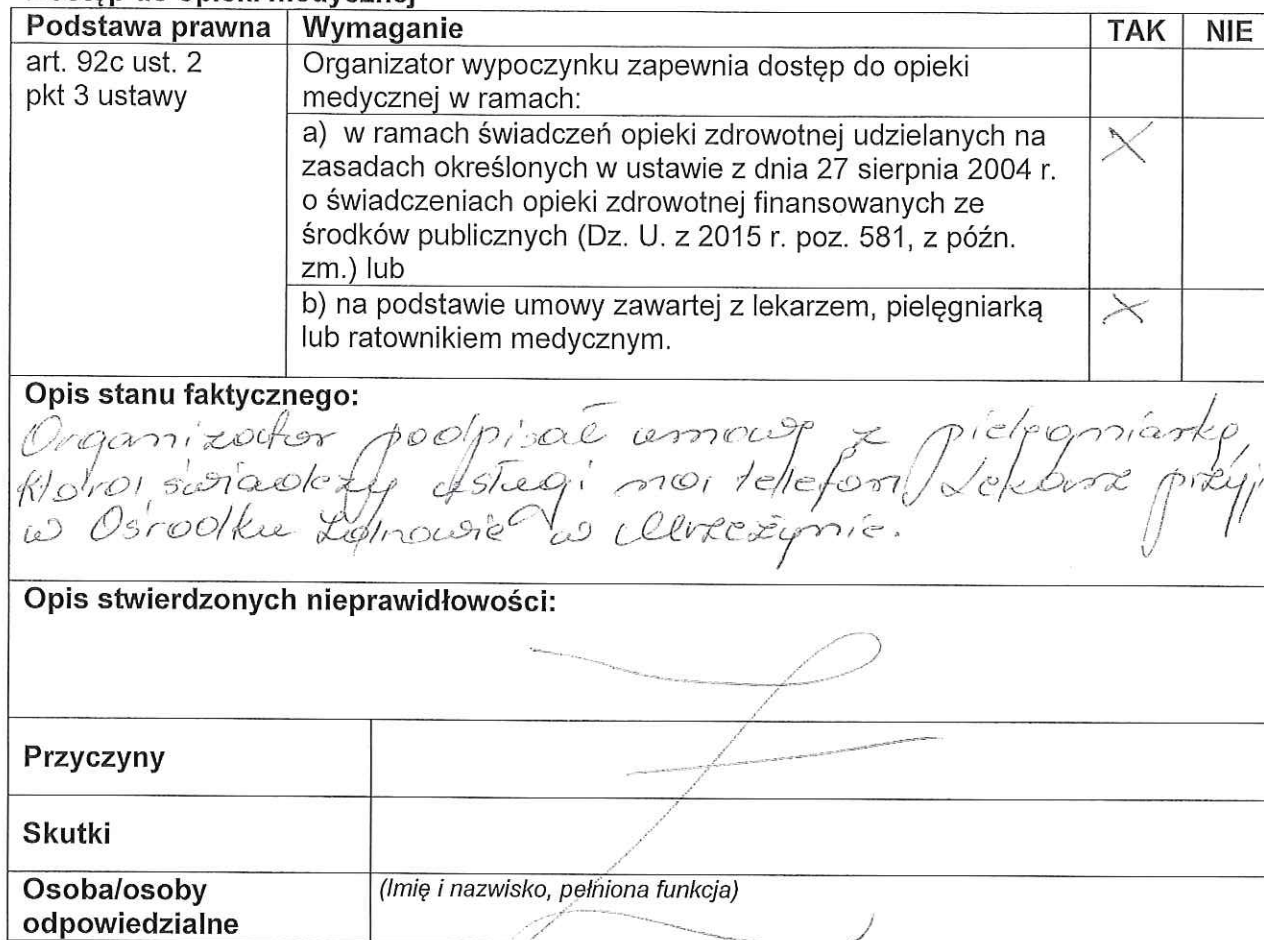 Podstawa prawna Wymaganie TAK NIE
art. 92c ust. 2
pkt 3 ustawy
Organizator wypoczynku zapewnia dostęp do opieki
medycznej w ramach:
a) w ramach świadczeń opieki zdrowotnej udzielanych na
zasadach określonych w ustawie z dnia 27 sierpnia 2004 r.
o świadczeniach opieki zdrowotnej finansowanych ze
środków publicznych (Dz. U. z 2015 r. poz. 581, z późn.
zm.) lub
X
b) na podstawie umowy zawartej z lekarzem, pielęgniarką
lub ratownikiem medycznym.
X
Opis stanu faktycznego:
Organizator podpisał umowę z pielęgniarką,
która świadczy usługi na telefon. Lekarz przyj
w Ośrodku Zdrowia w Mrzeżynie.
Opis stwierdzonych nieprawidłowości:
Przyczyny
Skutki
Osoba/osoby
odpowiedzialne
(Imię i nazwisko, pełniona funkcja)